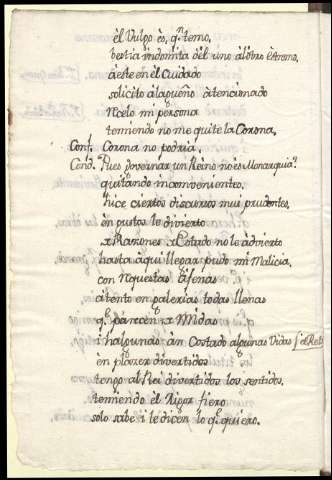 el Vulgo es, qn temo,
bestia indomita del uno al otro extremo,
a este en el Cuidado
solicito alagueño atencionado
Recelo mi persona
temiendo no me quite la Corona,
Conf. Corona no podria,
Cond. Pues governar un Reino no es Monarquia?
quitando inconvenientes,
hice ciertos discursos mui prudentes,
en gustos le divierto
a Raxones de Estado no le advierto
hasta aqui llegar pudo mi Malicia,
con Repuestas
atento en galerias todas llenas
qe parecen de Midas
i algunas an Costado algunas Vidas
en plazer divertidos
tengo al Rei divertidos los sentidos,
temiendo el Rigor fiero
solo sabe i le dicen lo qe quiero.